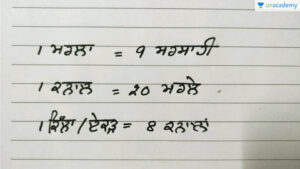 unacademy
1 ਮਰਲਾ = 9 ਸਰਸਾਹੀ
1 ਕਨਾਲ = 20 ਮਰਲੇ
1 ਕਿੱਲਾ / ਏਕੜ = 8 ਕਨਾਲਾਂ